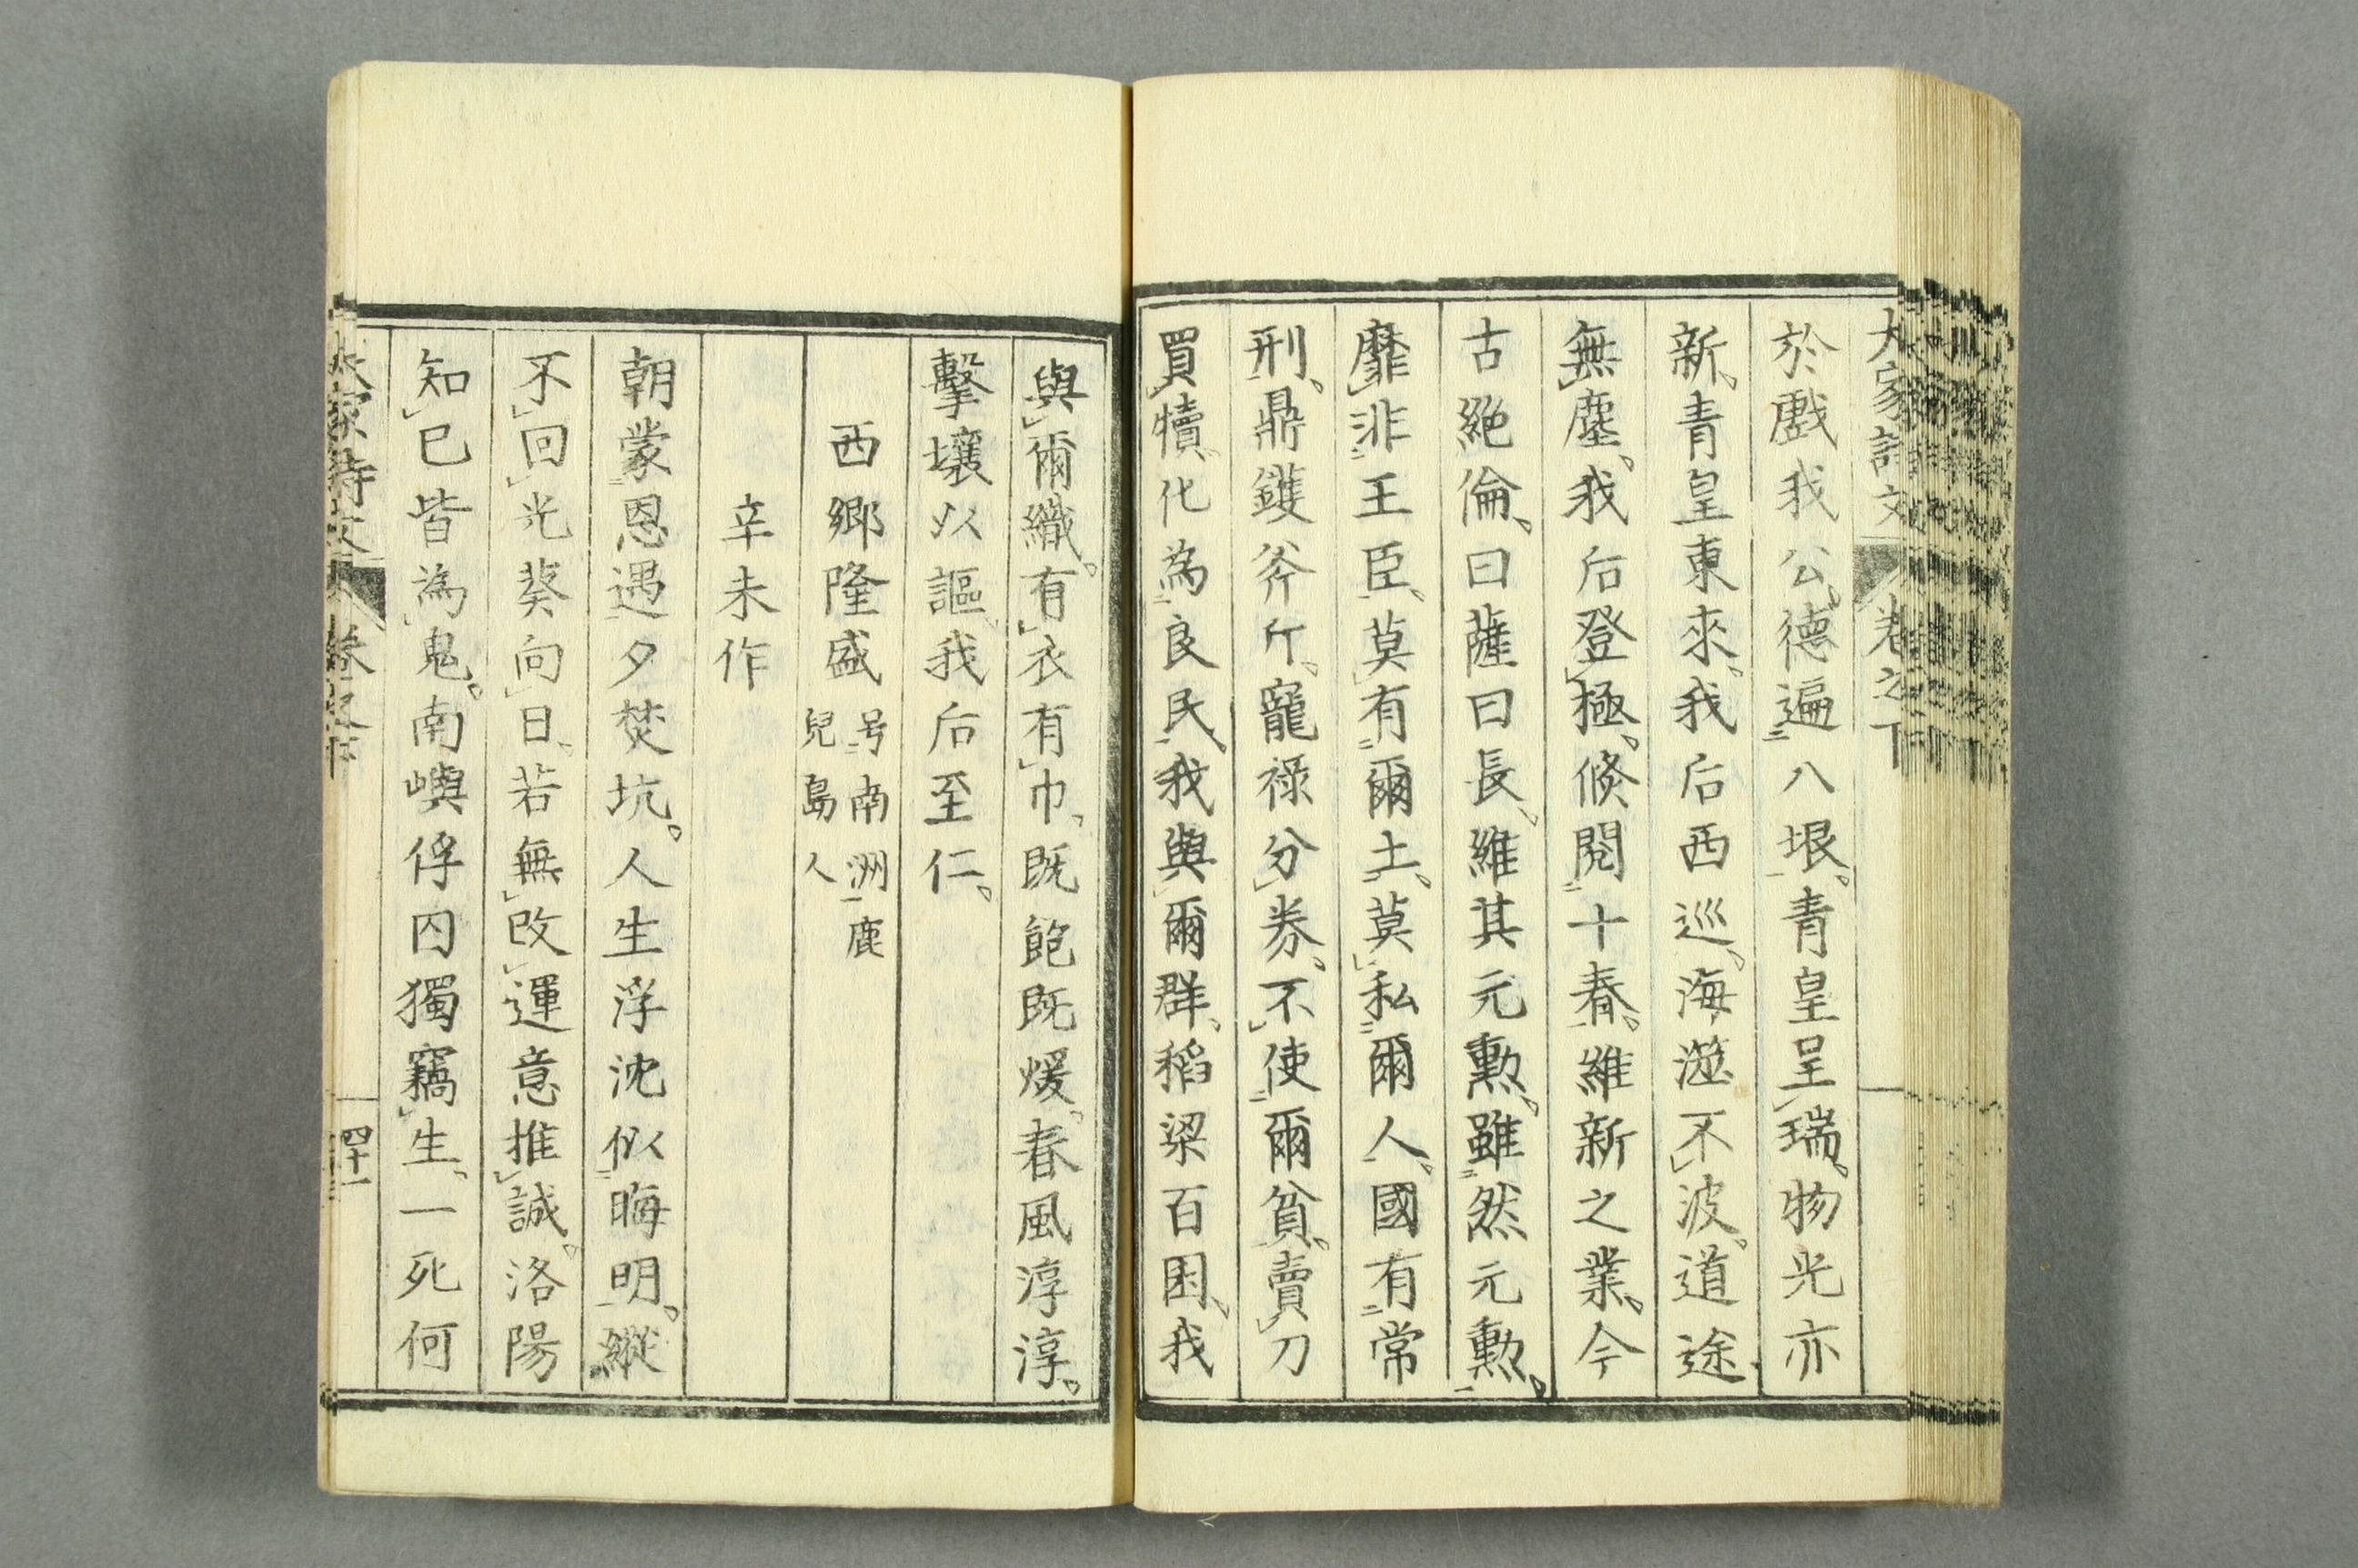 大家詩文 卷之下
於戲我公、德遍八垠。青皇呈瑞。物光亦
新、青皇東來。我后西巡、海澨不波。道途
無塵。我后登極、倐閱十春。維新之業、今
古絶倫、曰薩曰長、維其元勲。雖然元勲、
靡非王臣、莫有爾土、莫私爾人、國有常
刑、鼎鑊斧斤。寵祿分券、不使爾貧。賣刀
買犢、化為良民、我與爾群、稻粱百囷、我
與爾織。有衣有巾、既飽既煖。春風淳淳。
擊壤以謳、我后至仁。
西郷隆盛 号南洲鹿
兒島人
辛未作
朝蒙恩遇夕焚坑。人生浮沈似晦明。縱
不回光葵向日、若無改運意推誠。洛陽
知已皆為鬼。南嶼俘囚獨竊生、一死何
大家詩文 卷之下 四十一